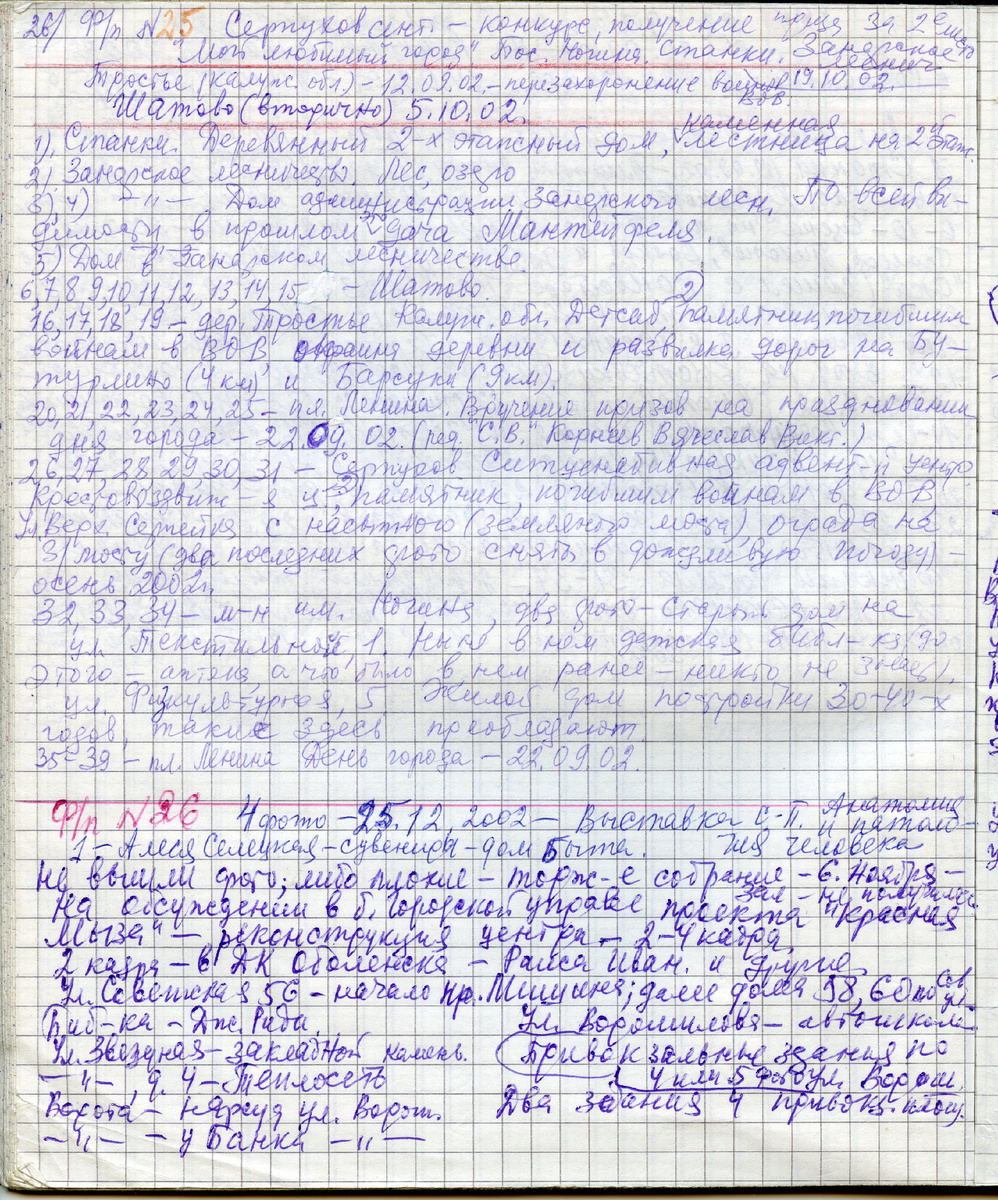 26/ Ф/п N25 Серпухов сент. – конкурс, получение приза за 2е место
"Мой любимый город" Пос. Ногина. Станки. Занарское леснич
Тростье (Калуж. обл.) – 12.09.02. – перезахоронение воинов ВОВ. 19.10.02.
Шатово (вторично) 5.10.02.
1), Станки. Деревянный 2-х этажный дом, каменная лестница на 2й этаж.
2), Занарское лесничество. Лес, озеро
3), 4) –"– Дом администрации Занарского лесн. По всей ви-
димости в прошлом дача Мантейфеля.
5) Дом в Занарском лесничестве.
6,7,8,9,10,11,12,13,14,15 – Шатово.
16,17,18,19 – дер. Тростье Калуж. обл. Детсад, памятник погибшим (2)
воинам в ВОВ окраина деревни и развилка дорог на Бу-
турлино (4 км) и Барсуки (9 км).
20,21,22,23,24,25 – пл. Ленина. Вручение призов на праздновании
дня города – 22.09.02. (ред. "С.В." Корнеев Вячеслав Викт.)
26,27,28,29,30,31 – Серпухов Ситценабивная адвент-й центр
Крестовоздвиж-я ц., памятник погибшим воинам в ВОВ
ул. Верх. Серпейка с насыпного (земляного моста), ограда на
3/мосту (два последних фото сняты в дождливую погоду) –
осень 2002 г.
32,33,34 – м-н им. Ногина, два фото – старый дом на
ул. Текстильной, 1. Ныне в нем детская библ-ка (до
этого – аптека, а что было в нем ранее – никто не знает).
ул. Физкультурная, 5. Жилой дом постройки 30-40-х
годов, такие здесь преобладают.
35-39 – пл. Ленина День города – 22.09.02.
Ф/п N26 4 фото – 25.12.2002 – Выставка С-П. Анатомия и патоло-
1 – Алеся Селецкая – сувениры – дом Быта. гия человека
Не вышли фото; либо плохие – торж-е собрание – 6. Ноября –
На обсуждении в б. Городской управе проекта "Красная зал – не получился
Мыза" – реконструкция центра – 2-4 кадра,
2 кадра – в ДК Оболенска – Раиса Иван. и другие
Ул. Советская 56 – начало пр. Мишина; далее дома 58, 60 по Сов ул
Биб-ка – Дж. Родари Ул. Ворошилова – автошкола
Ул. Звездная – закладной камень. Привокзальные здания по
–"– д. 4 – Теплосеть 4 или 5 фото ул. Ворош.
Ворота – нарсуд ул. Ворош. Два здания у привокз. площ.
–"– – у Банка –"–